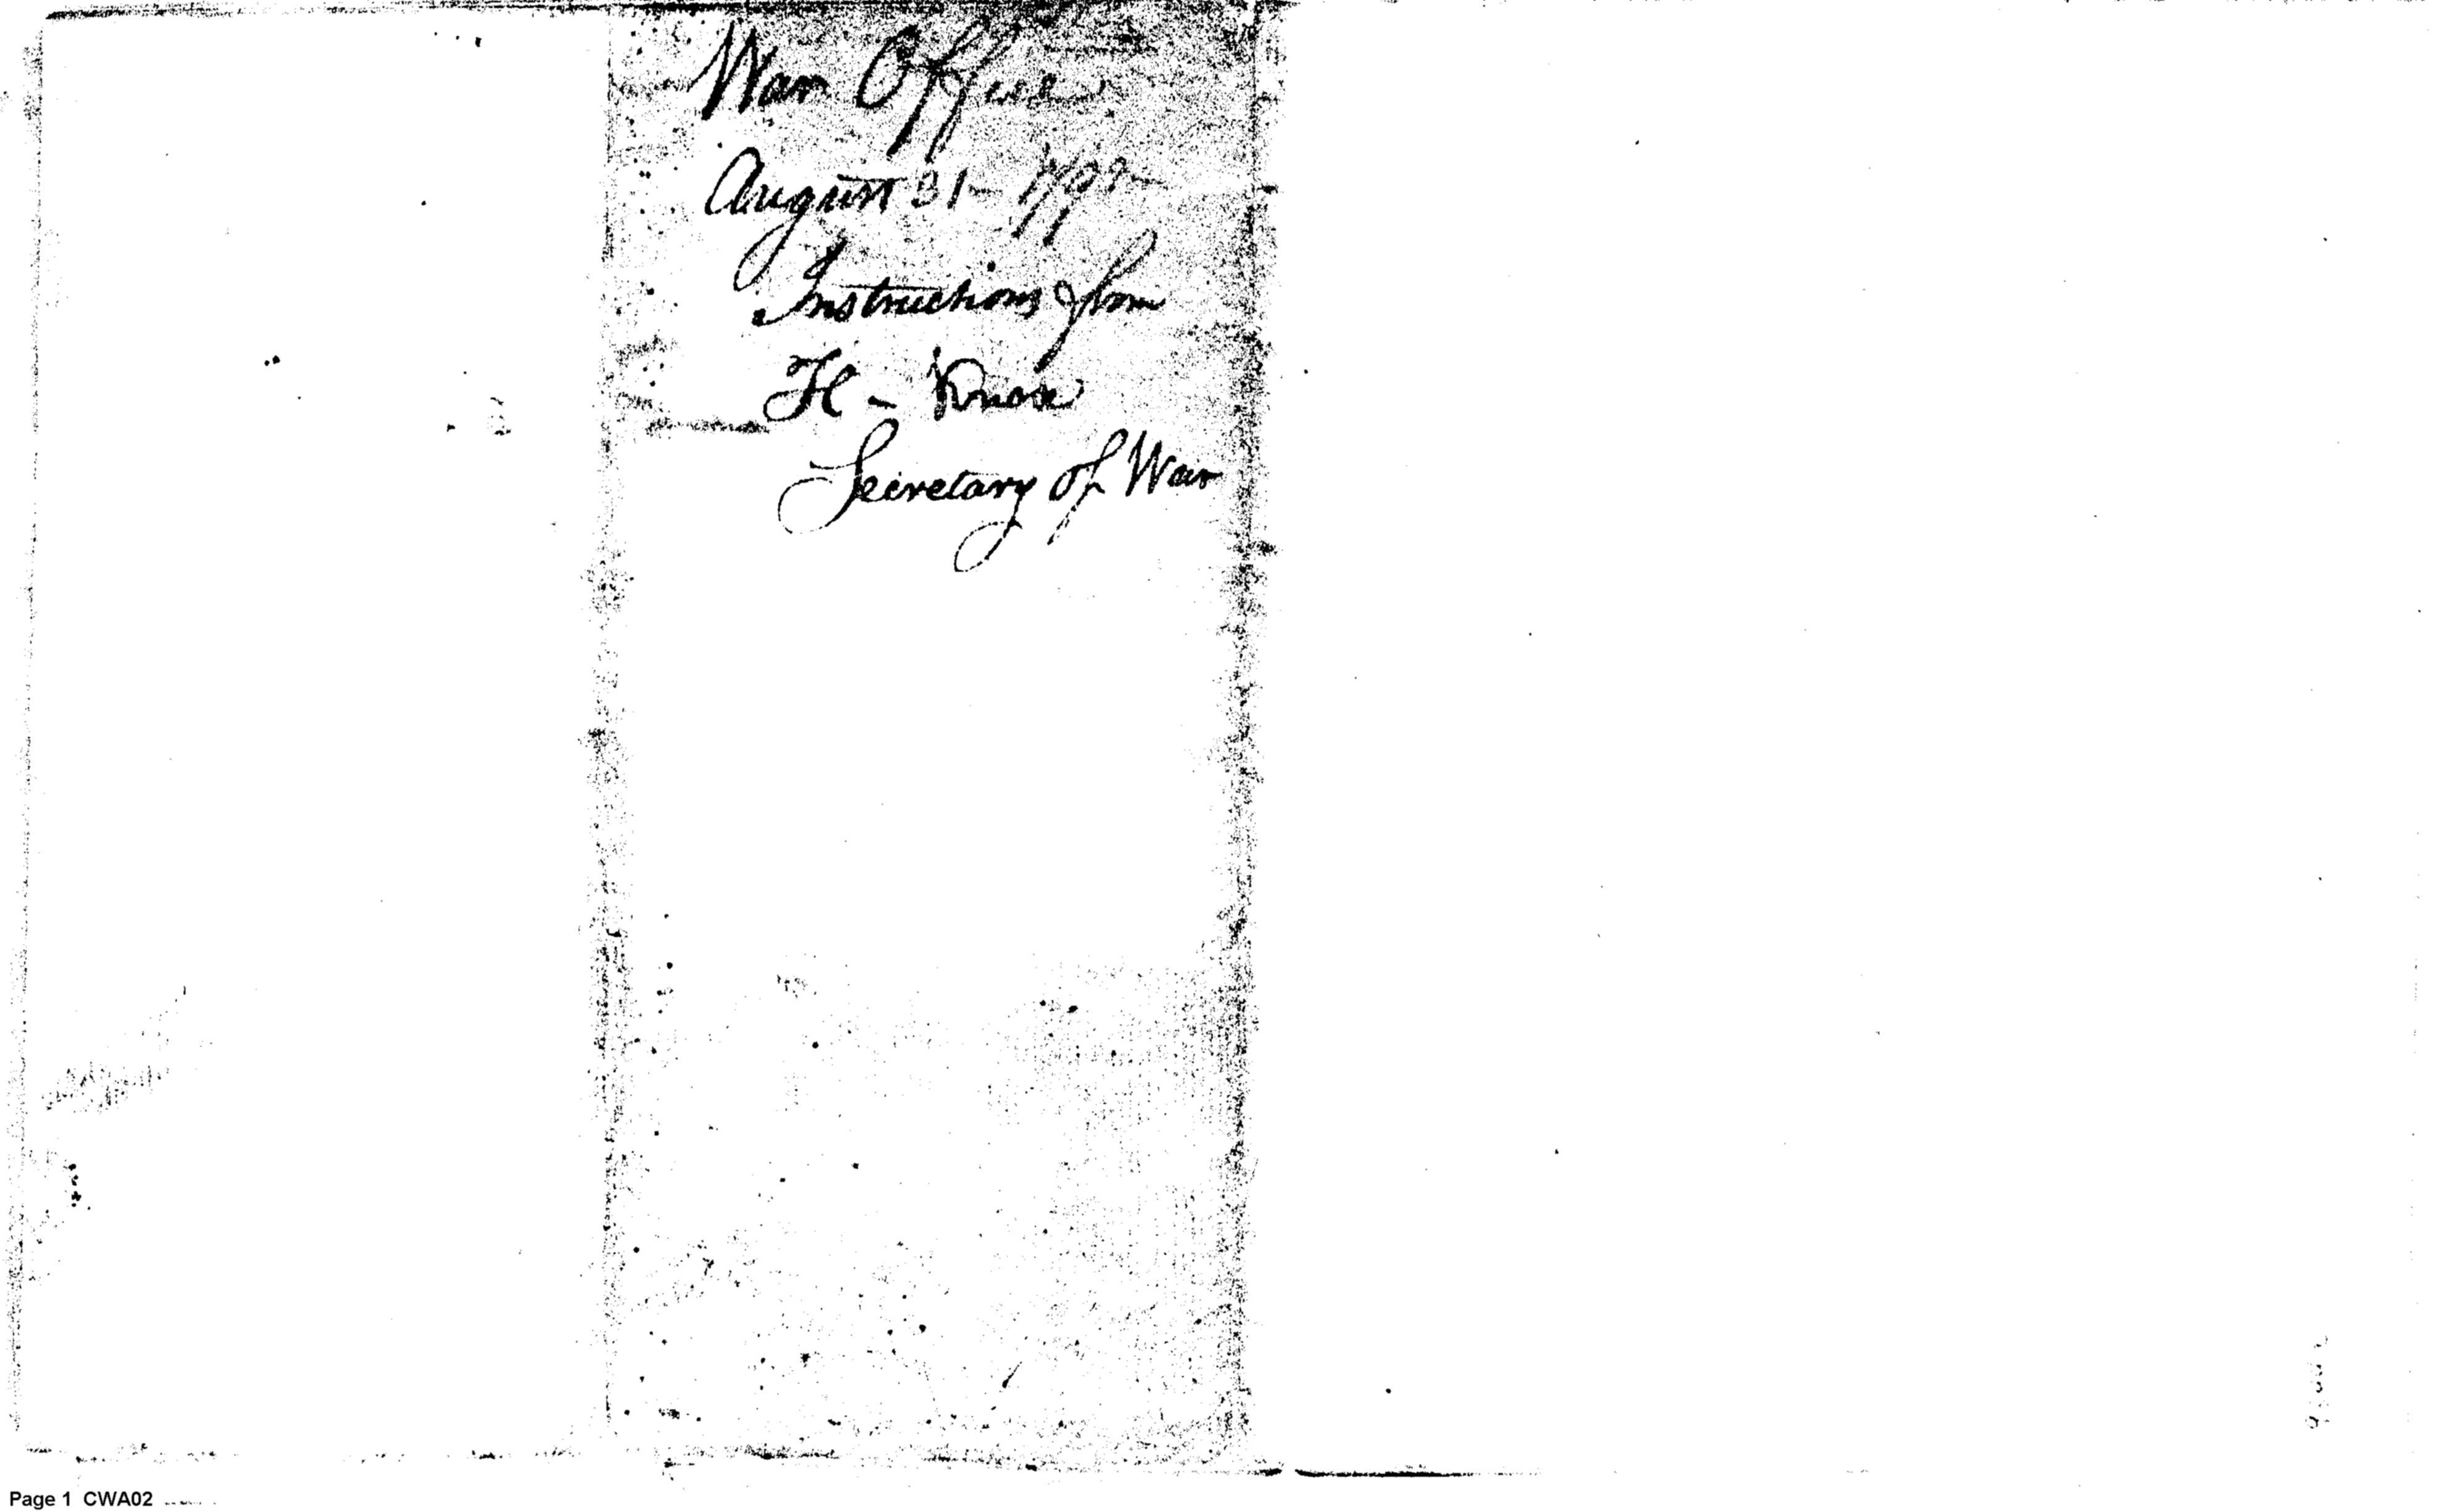 War Office
August 31 - 1792
Instructions from
H - Knox
Secretary of War
Page 1 CWA02